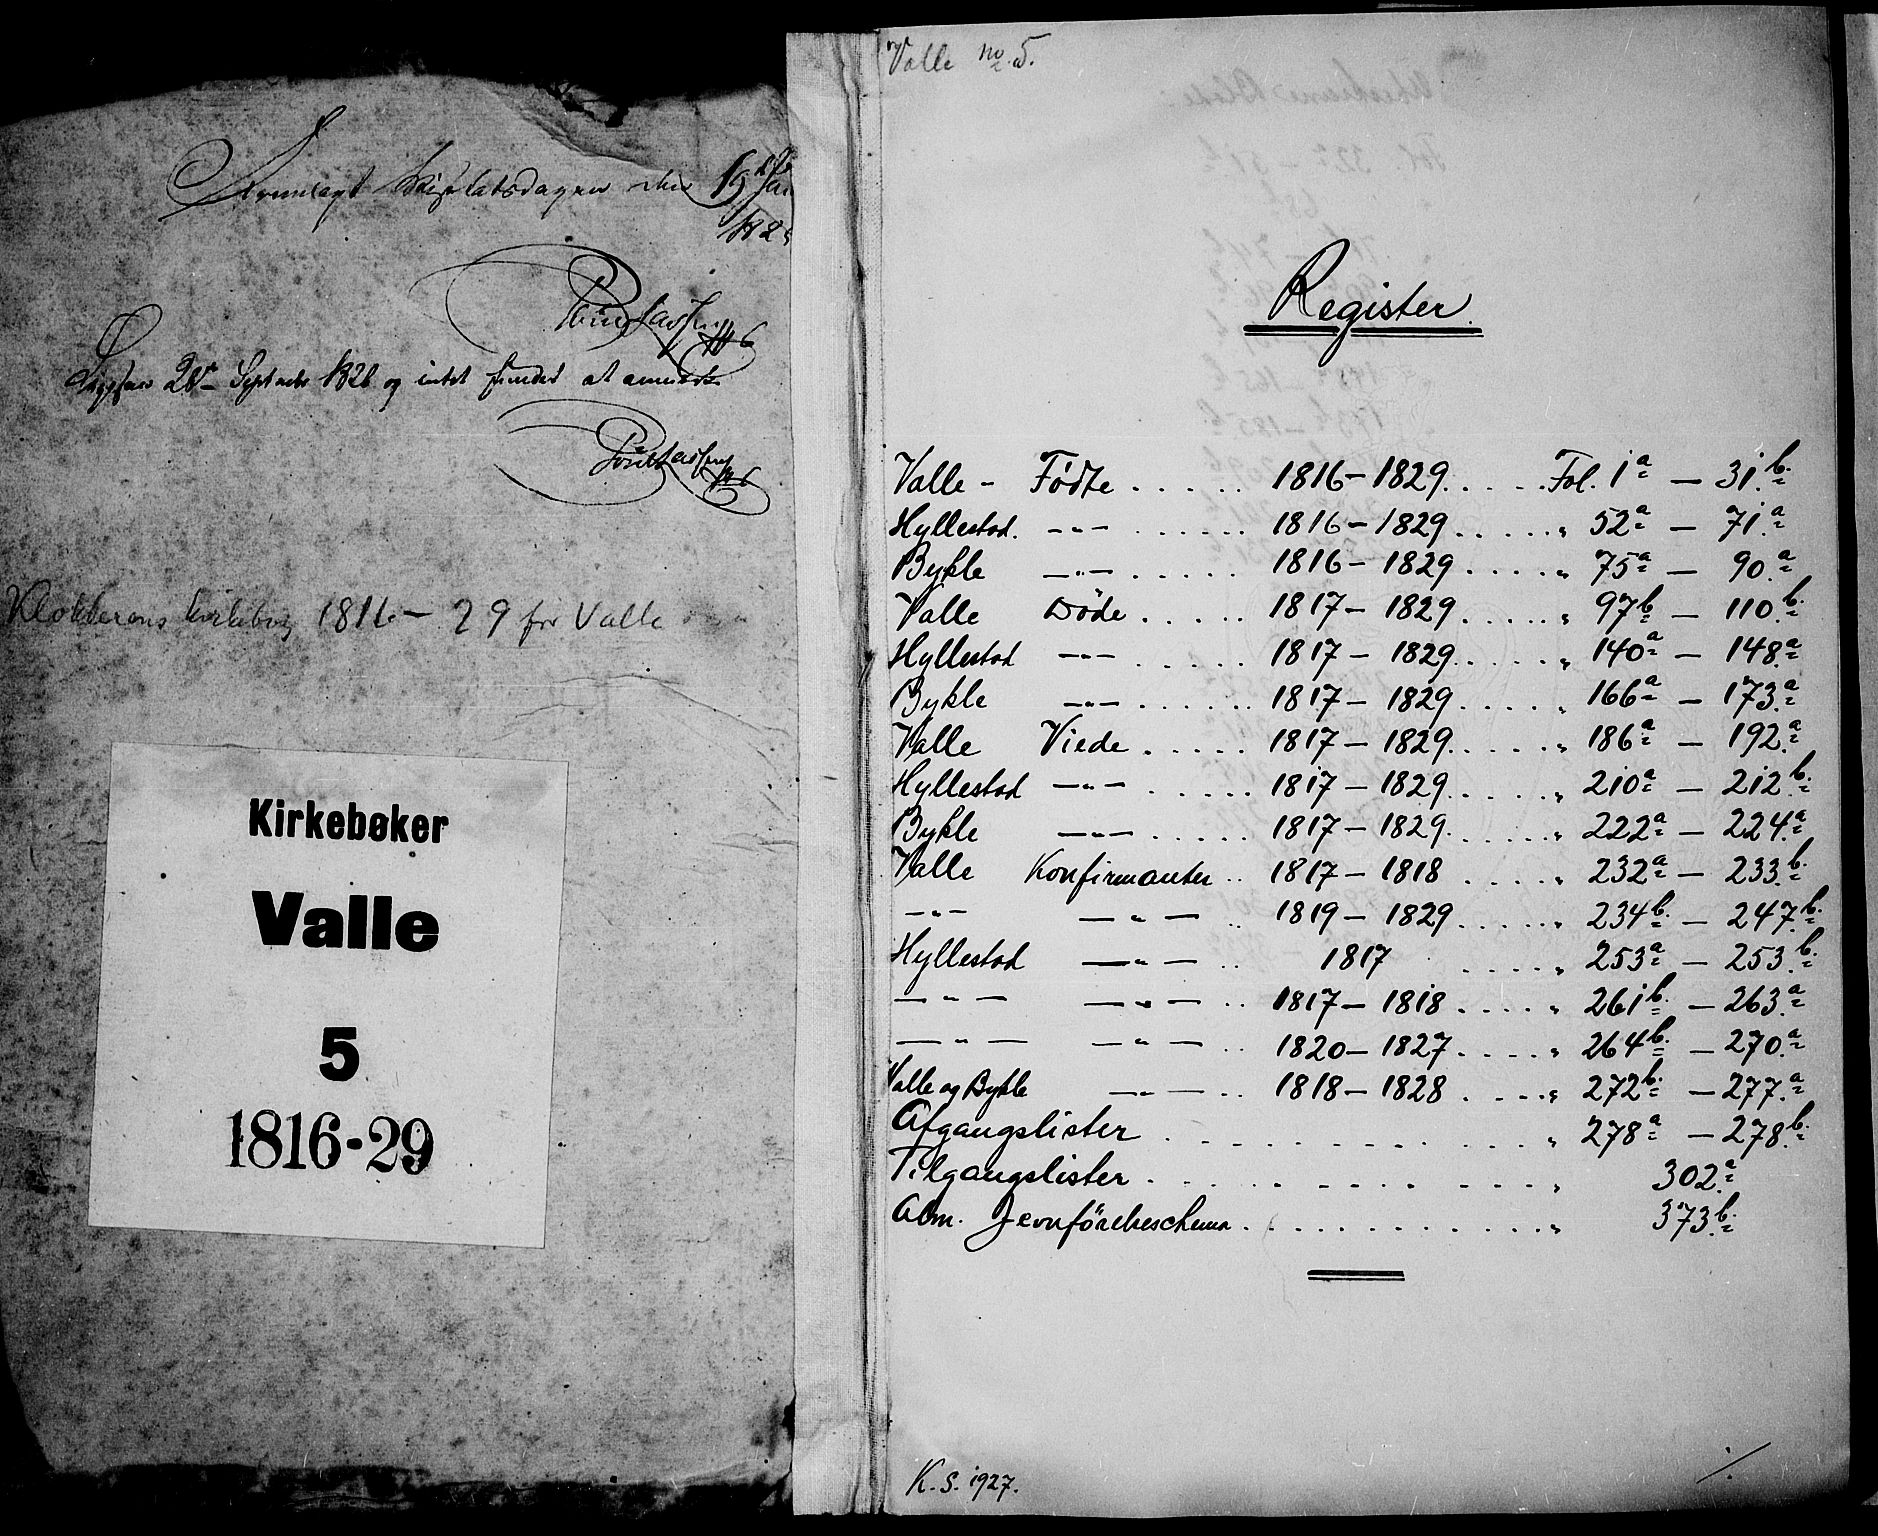 den 19de
Septembr 1826 og intet fundet at anmærke
Klokkerens kirkebog 1816 - 29 for Valle
Kirkebøker
Valle
5
1816-29
Valle no. 5.
Register.
Valle - Fødte . . . . . . 1816 - 1829. . . . . Fol. 1a - 31b.
Hyllestad. -"- . . . . . . 1816 - 1829 . . . . . " 52a - 71a.
Bykle -"- . . . . . . 1816 - 1829 . . . . . " 75a - 90a.
Valle Døde . . . . . . 1817 - 1829 . . . . . " 97b - 110b.
Hyllestad -"- . . . . . . 1817 - 1829 . . . . . " 140a - 148a.
Bykle -"- . . . . . . 1817 - 1829 . . . . . " 166a - 173a.
Valle Viede . . . . . . 1817 - 1829 . . . . . " 186a - 192a.
Hyllestad -"- . . . . . . 1817 - 1829 . . . . . " 210a - 212b.
Bykle -"- . . . . . . 1817 - 1829 . . . . . " 222a - 224a.
Valle Konfirmanter . . 1817 - 1818 . . . . " 232a - 233b.
-"- -"- . . 1819 - 1829 . . . . . " 234b. - 247b.
Hyllestad -"- . . 1817 . . . . . " 253a - 253b.
-"- -"- . . 1817 - 1818 . . . . . " 261b. - 263a.
-"- -"- . . 1820 - 1827 . . . . . " 264b. - 270a.
Valle og Bykle -"- . . 1818 - 1828 . . . . . " 272b. - 277a.
Afgangslister . . . . . . . . . . . " 278a - 278b.
Tilgangslister . . . . . . . . . . . " 302a.
Alm. Jevnførelseschema . . . . . . . . . . " 373b.
K. S. 1927.